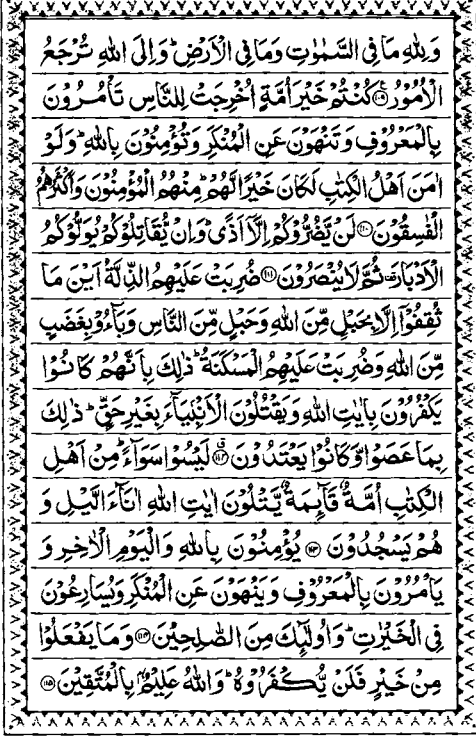 وَلِلّٰهِ مَا فِی السَّمٰوٰتِ وَمَا فِی الْاَرْضِ ؕ وَاِلَی اللّٰهِ تُرْجَعُ
الْاُمُوْرُ ﴿۱۰۹﴾ کُنْتُمْ خَیْرَ اُمَّةٍ اُخْرِجَتْ لِلنَّاسِ تَاْمُرُوْنَ
بِالْمَعْرُوْفِ وَتَنْهَوْنَ عَنِ الْمُنْکَرِ وَتُؤْمِنُوْنَ بِاللّٰهِ ؕ وَلَوْ
اٰمَنَ اَهْلُ الْکِتٰبِ لَکَانَ خَیْرًا لَّهُمْ ؕ مِنْهُمُ الْمُؤْمِنُوْنَ وَاَکْثَرُهُمُ
الْفٰسِقُوْنَ ﴿۱۱۰﴾ لَنْ یَّضُرُّوْکُمْ اِلَّاۤ اَذًی ؕ وَاِنْ یُّقَاتِلُوْکُمْ یُوَلُّوْکُمُ
الْاَدْبَارَ ۟ ثُمَّ لَا یُنْصَرُوْنَ ﴿۱۱۱﴾ ضُرِبَتْ عَلَیْهِمُ الذِّلَّةُ اَیْنَ مَا
ثُقِفُوْۤا اِلَّا بِحَبْلٍ مِّنَ اللّٰهِ وَحَبْلٍ مِّنَ النَّاسِ وَبَآءُوْ بِغَضَبٍ
مِّنَ اللّٰهِ وَضُرِبَتْ عَلَیْهِمُ الْمَسْکَنَةُ ؕ ذٰلِکَ بِاَنَّهُمْ کَانُوْا
یَکْفُرُوْنَ بِاٰیٰتِ اللّٰهِ وَیَقْتُلُوْنَ الْاَنْۢبِیَآءَ بِغَیْرِ حَقٍّ ؕ ذٰلِکَ
بِمَا عَصَوْا وَّکَانُوْا یَعْتَدُوْنَ ﴿۱۱۲﴾ لَیْسُوْا سَوَآءً ؕ مِنْ اَهْلِ
الْکِتٰبِ اُمَّةٌ قَآئِمَةٌ یَّتْلُوْنَ اٰیٰتِ اللّٰهِ اٰنَآءَ الَّیْلِ وَ
هُمْ یَسْجُدُوْنَ ﴿۱۱۳﴾ یُؤْمِنُوْنَ بِاللّٰهِ وَالْیَوْمِ الْاٰخِرِ وَ
یَاْمُرُوْنَ بِالْمَعْرُوْفِ وَیَنْهَوْنَ عَنِ الْمُنْکَرِ وَیُسَارِعُوْنَ
فِی الْخَیْرٰتِ ؕ وَاُولٰٓئِکَ مِنَ الصّٰلِحِیْنَ ﴿۱۱۴﴾ وَمَا یَفْعَلُوْا
مِنْ خَیْرٍ فَلَنْ یُّکْفَرُوْهُ ؕ وَاللّٰهُ عَلِیْمٌۢ بِالْمُتَّقِیْنَ ﴿۱۱۵﴾